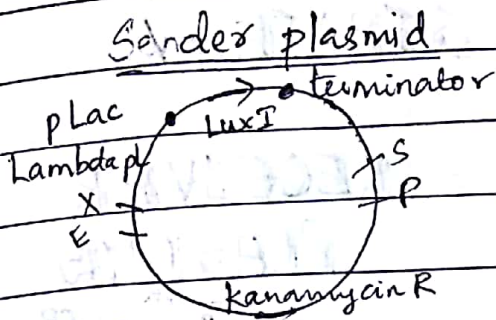 Sender plasmid
terminator
pLac
LuxI
Lambda pL
S
X
P
E
Kanamycin R